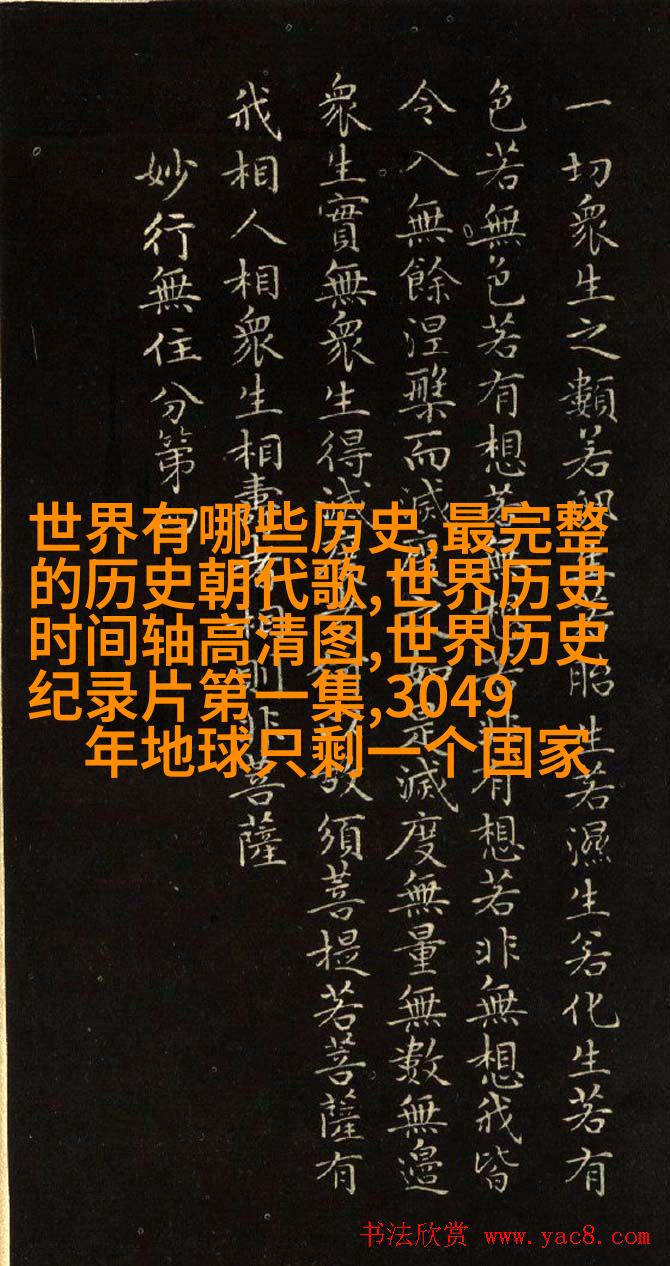 一切衆生之類若胎生若濕生若化生若有
色若無色若有想若無有想若非無想我皆
令入無餘涅槃而滅是滅度無量無數無邊
衆生實無衆生得滅故須菩提若菩薩有
我相人相衆生相壽相非菩薩
妙行無住分第
世界有哪些历史,最完整
的历史朝代歌,世界历史
时间轴高清图,世界历史
纪录片第一集,3049
年地球只剩一个国家
书法欣赏 www.yac8.com